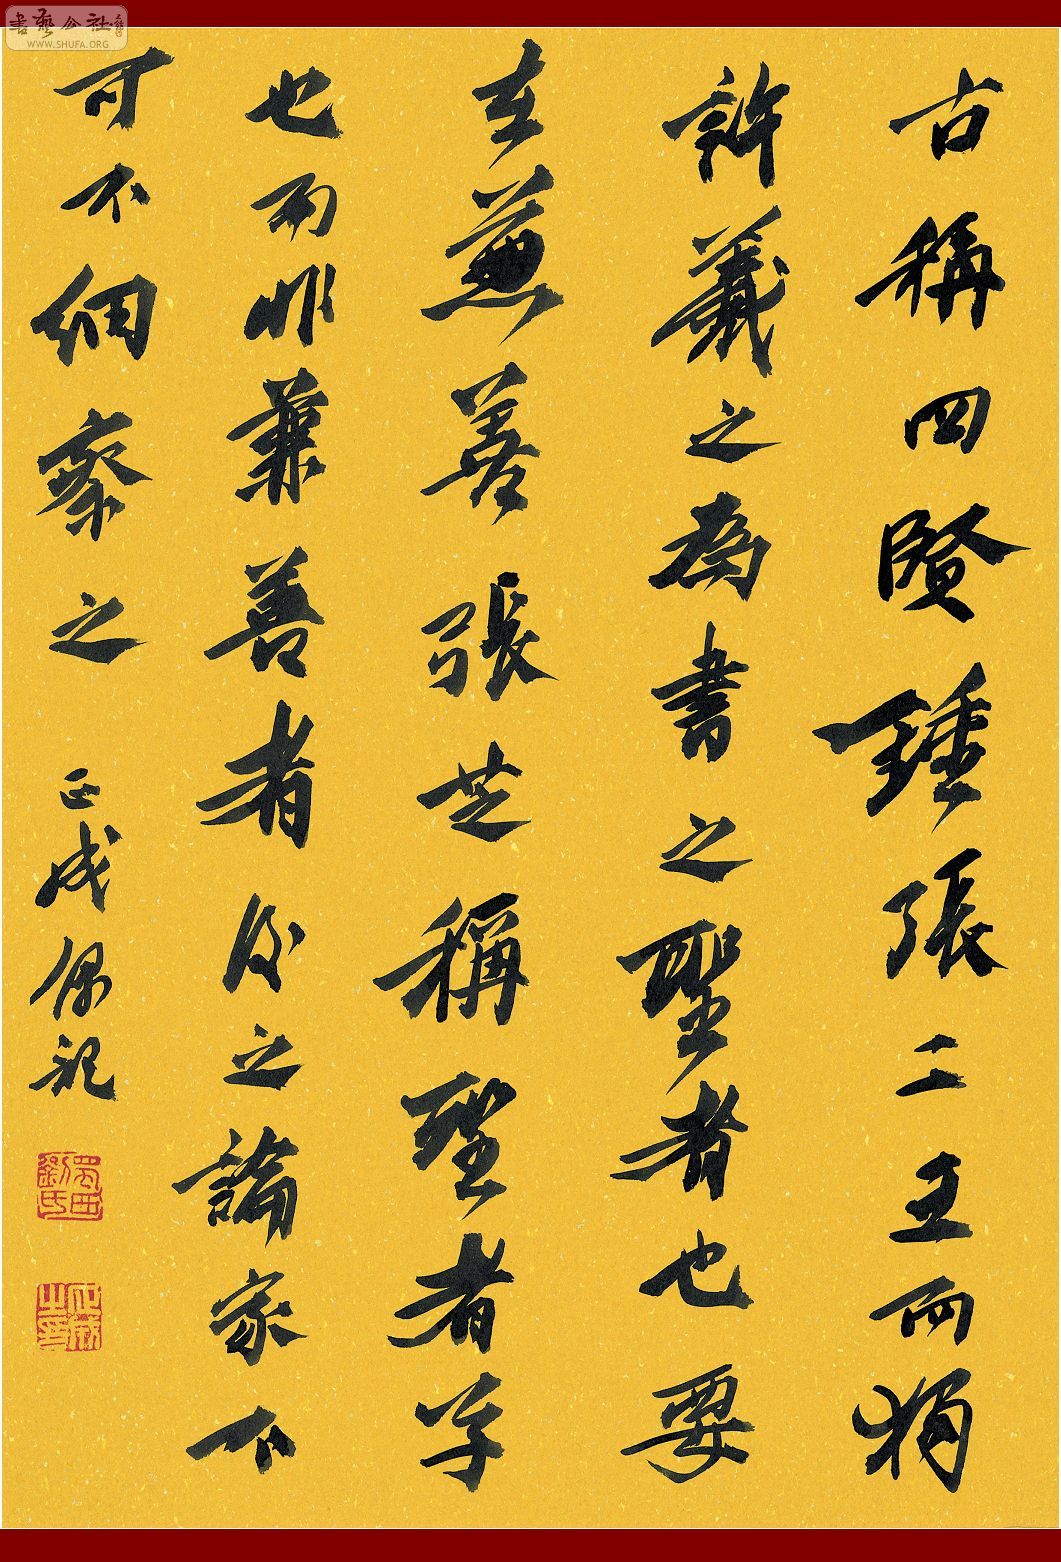 書藝公社
WWW.SHUFA.ORG
古稱四賢鍾張二王而獨
許羲之為書之聖者也要
在兼善張芝稱聖者草
也而非兼善者後之論家不
可不細察之
正成偶記
蜀西劉氏
正成之印